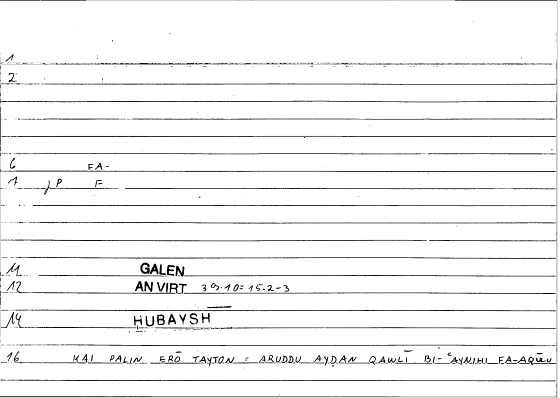 1
2
6 FA-
7 P F
11 GALEN
12 AN VIRT 39.10=15.2-3
14 HUBAYSH
16 KAI PALIN ERŌ TAYTON = ARUDDU AYDAN QAWLĪ BI-ʿAYNIHI FA-AQŪLU